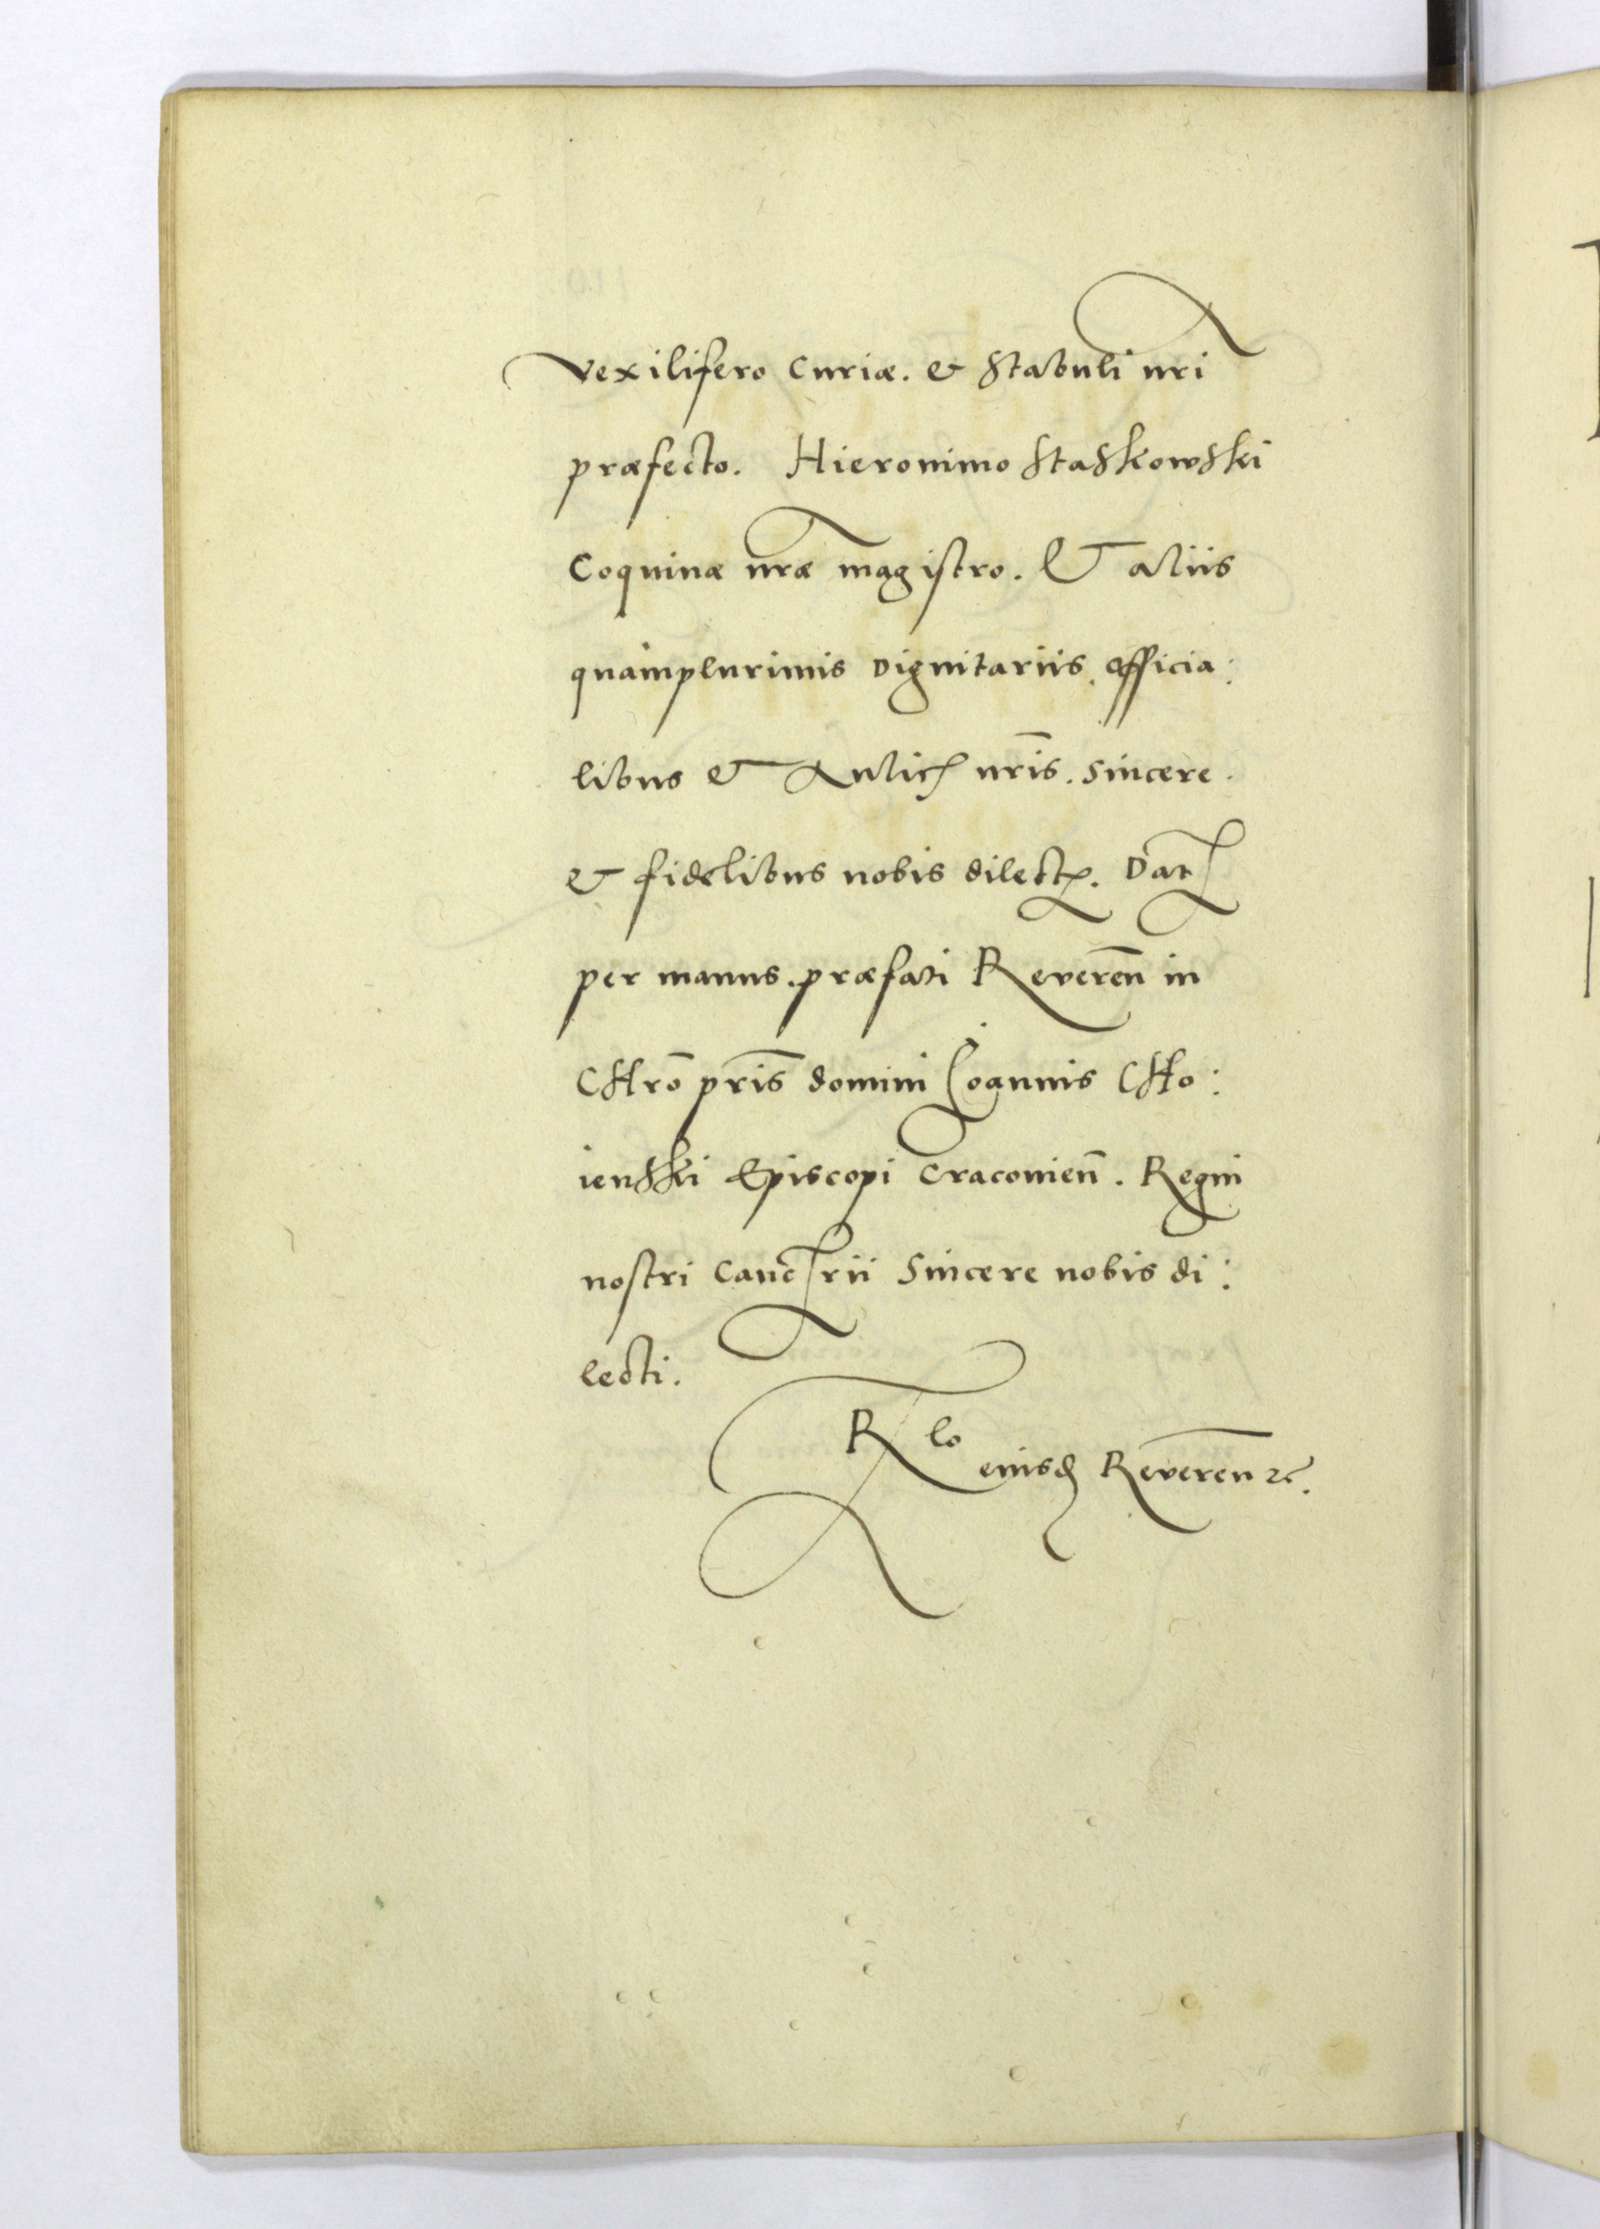 vexilifero Curiæ. & Stabuli nri
præfecto. Hieronimo Staskowski
Coquinæ nræ magistro. & aliis
quamplurimis dignitariis. officia:
libus & Aulic nris. sincere.
& fidelibus nobis dilect. Dat
per manus. præfati Reveren̄ in
Chrō pris domini Ioannis Cho:
ienski Episcopi Cracovien̄. Regni
nostri Canc rii sincere nobis di:
lecti.
Rlo
eiusd Reveren̄ &c.